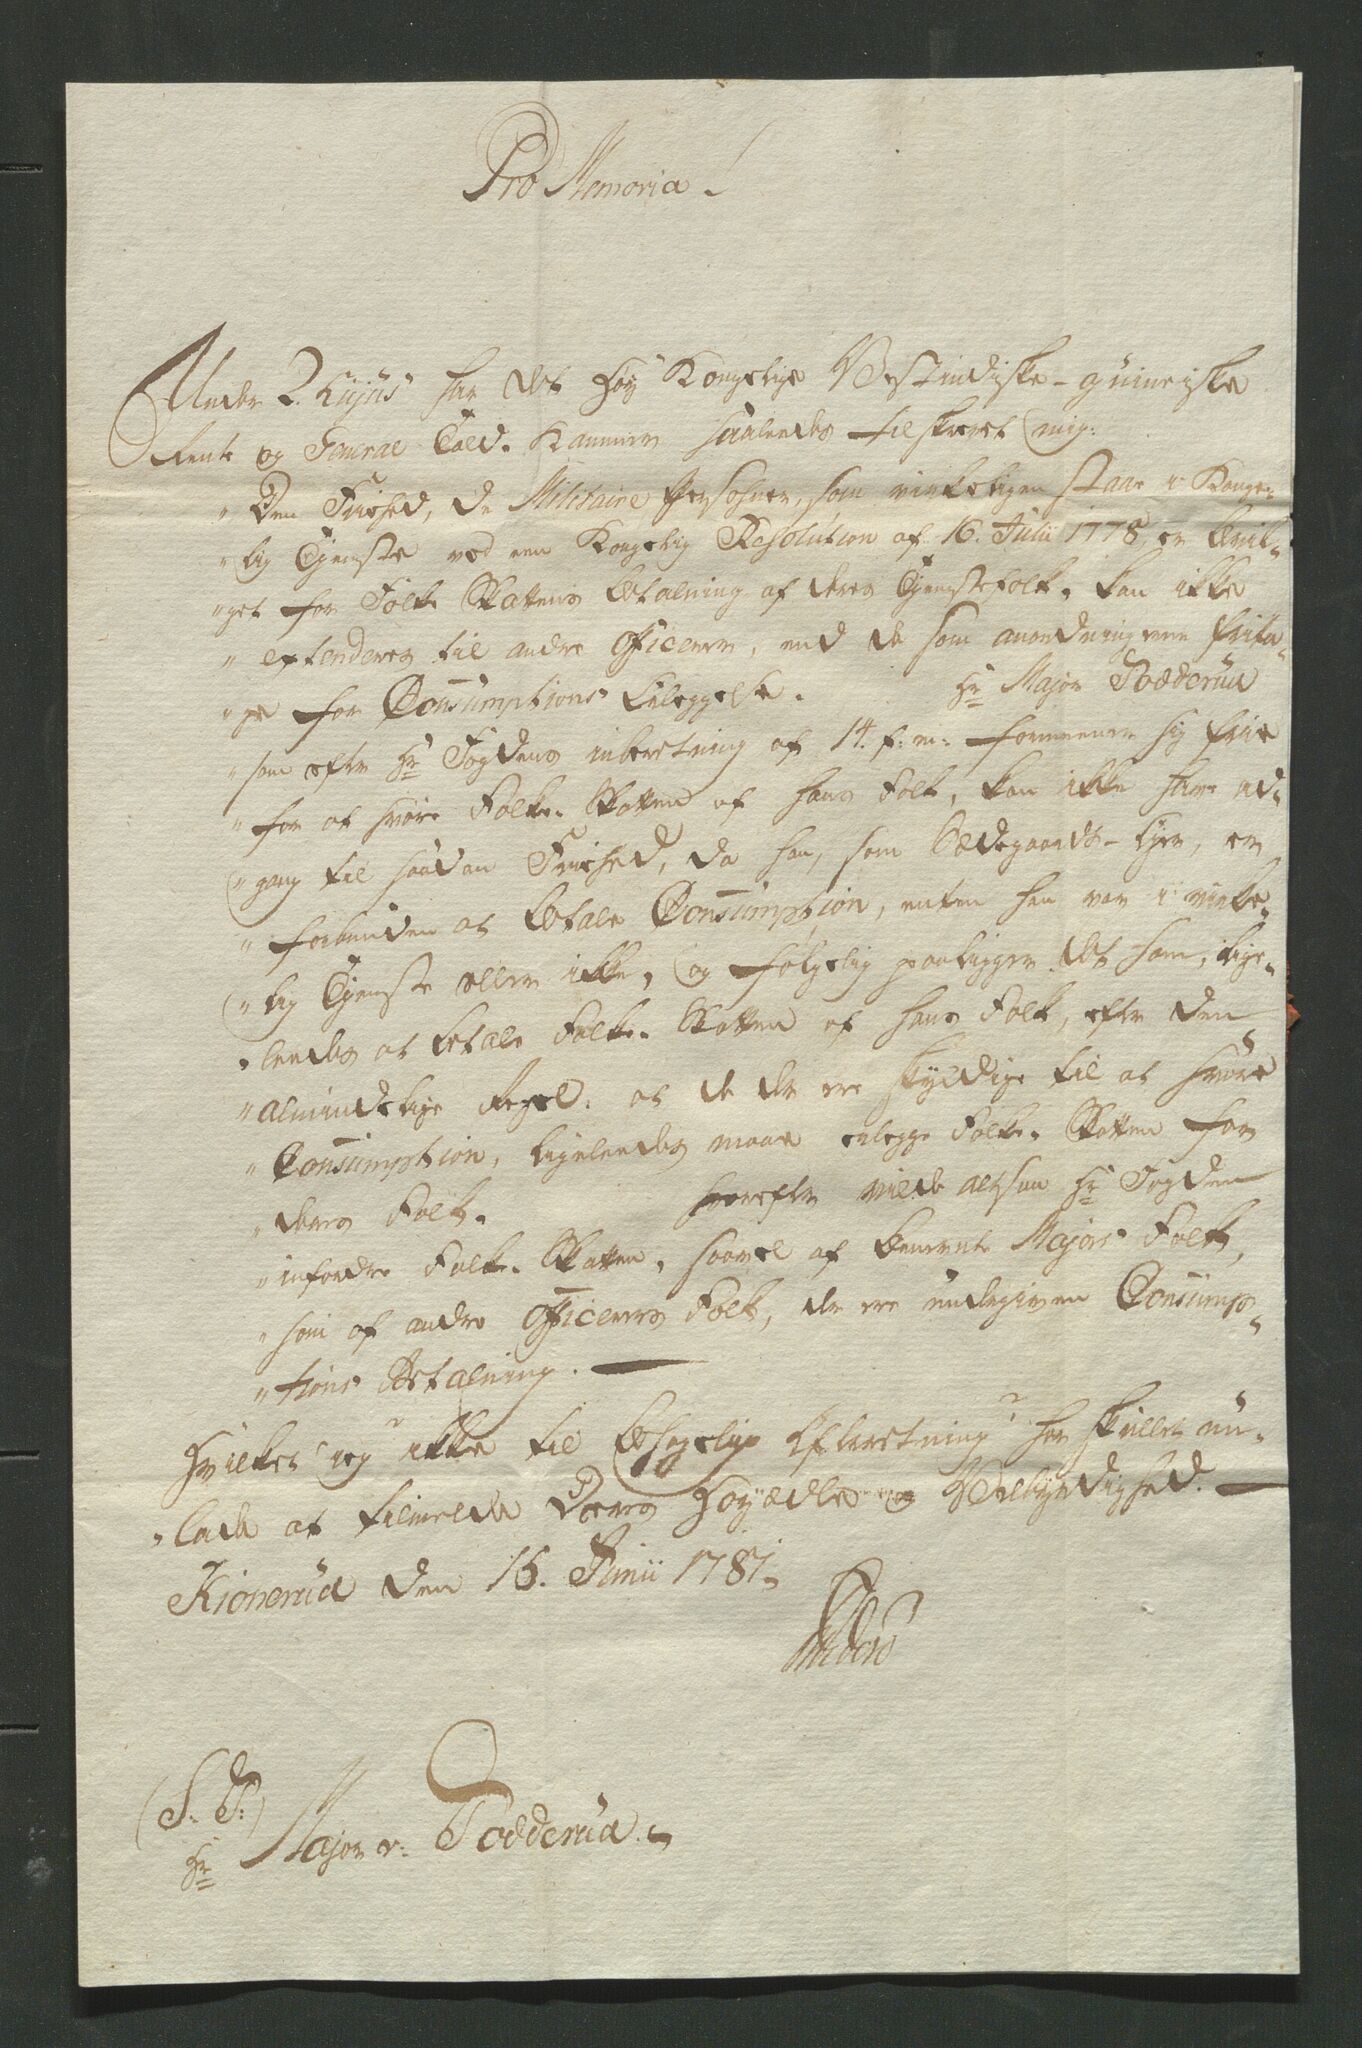 Pro Memoria
Under 2. hujus har det Høy Kongelige Vestindiske-guineiske
Rente og General Told-Kammer saaledes tilskrevet mig:
"Den Friehed, de Militaire Personer, som virkeligen staar i Konge-
"lig Tjeneste ved een Kongelig Resolution af 16. Julii 1778 er bevil-
"get for Folke Skattens betalning af deres Tjenestefolk, kan ikke
"extenderes til andre Officerer, end de som anordningerne frita-
"ge for Consumptions Erleggelse. Hr Major Todderud
"som efter Hr Fogdens inberetning af 14. f: m: formeener sig frie
"for at svare Folke-Skatten af hans Folk, kan ikke have ad-
"gang til saadan Friehed, da han, som Sædegaards-Ejer, er
"forbunden at betale Consumption, enten han var i virke-
"lig Tjeneste eller ikke, og følgelig paaligger det ham, lige-
"leedes at betale Folke-Skatten af hans Folk, efter den
"almindelige Regel, at de der ere skyldige til at svare
"Consumption, ligeleedes maae erlegge Folke-Skatten for
"deres Folk. Hvorefter vilde altsaa Hr Fogden
"infordre Folke-Skatten, saavel af benævnte Majors Folk,
"som af andre Officerers Folk, der ere undergiven Consump-
"tions Betalning.
Hvilket jeg ikke til behagelig Efterretning har skullet un-
"lade at tilmelde Deres Høyædle og Velbyrdighed.
Kionerud den 16. Junii 1781
(S. T.)
Hr Major v: Todderud.